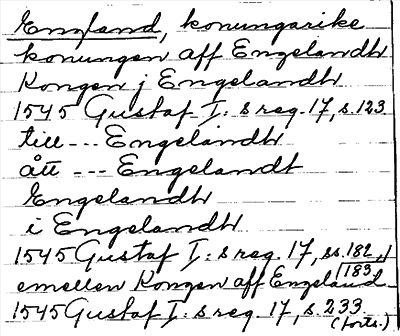 England, konungarike
konungen aff Engelandh
Kongen j Engelandh
1545 Gustaf I:s reg. 17, s. 123
till --- Engelandh
ått --- Engelandt
Engelandh
i Engelandh
1545 Gustaf I:s reg. 17, ss. 182, 183
emellen Kongen aff Engeland
1545 Gustaf I:s reg. 17, s. 233
(forts.)